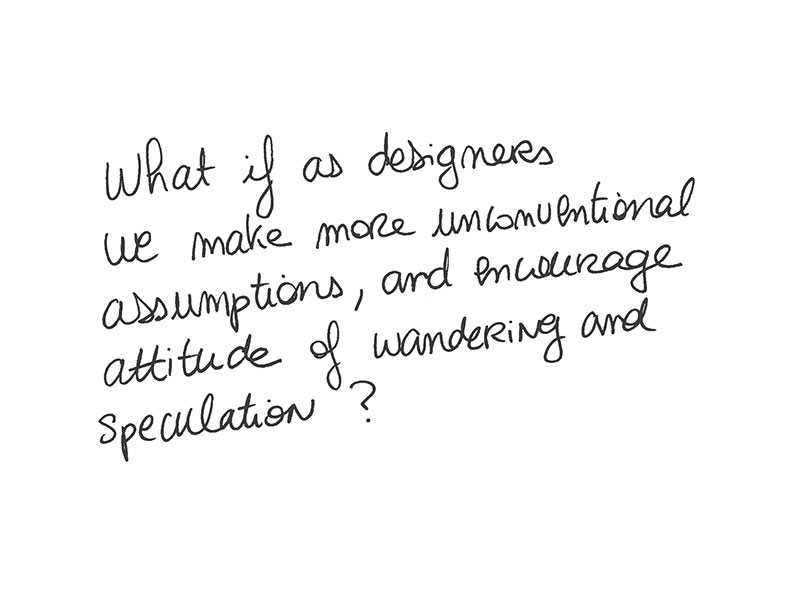 What if as designers
we make more unconventional
assumptions, and encourage
attitude of wandering and
speculation ?